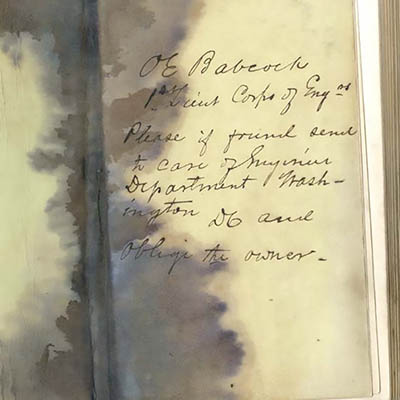 OE Babcock
1st Lieut Corps of Engrs
Please if found send
to care of Enginier
Department Wash-
ington DC and
oblige the owner-